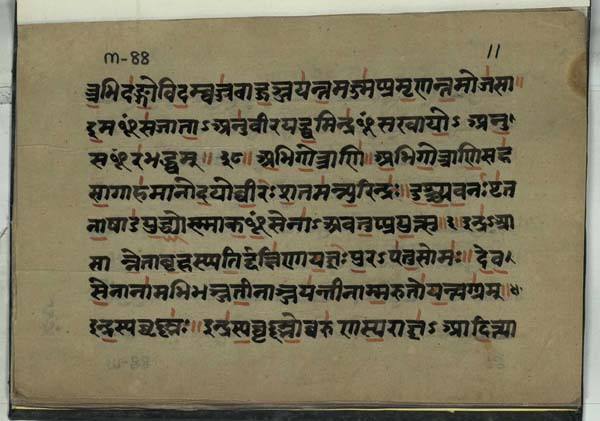 m-88 11
त्रभिदङ्गोविदम्वज्रबाहुञ्जयन्तमज्मप्प्रमृणन्तमोजसा
इमᳪसजाताऽअनुवीरयद्ध्वमिन्द्रᳪसखायोऽअनु
सᳪरभद्ध्वम्॥ अभिगोत्राणि॥ अभिगोत्राणिसह
सागाहमानोदयोव्वीरःशतमन्युरिन्द्रः॥ दुश्च्यवनःपृत
नाषाडयुद्ध्योस्माकᳪसेनाऽअवतुप्प्रयुत्सु॥ इन्द्रऽआ
सा न्नेताबृहस्पतिर्द्दक्षिणायज्ञःपुरऽएतुसोमः॥ देव
सेनानामभिभञ्जतीनाञ्जयन्तीनाम्मरुतोयन्त्वग्रम्॥
इन्द्रस्यवृष्ण्णः॥ इन्द्रस्यवृष्ण्णोव्वरुणस्यराज्ञऽआदित्या